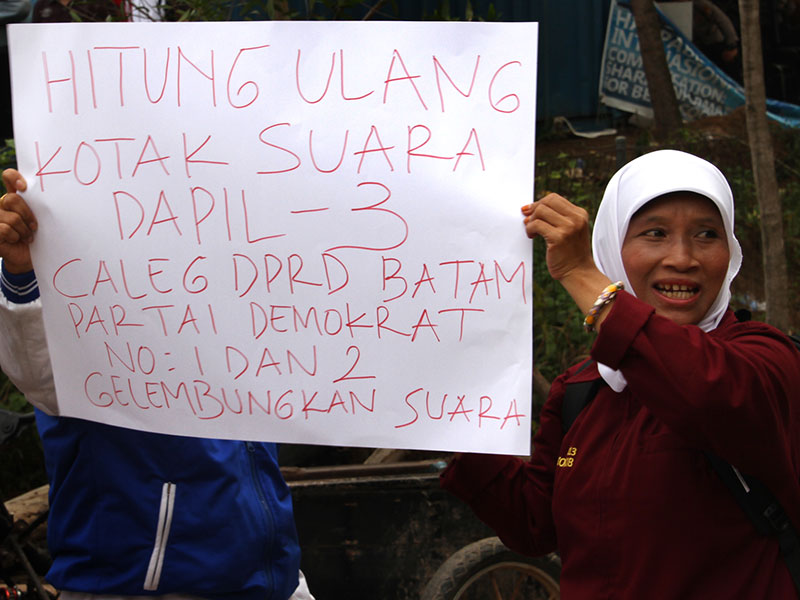 HITUNG ULANG
KOTAK SUARA
DAPIL - 3
CALEG DPRD BATAM
PARTAI DEMOKRAT
NO: 1 DAN 2
GELEMBUNGKAN SUARA